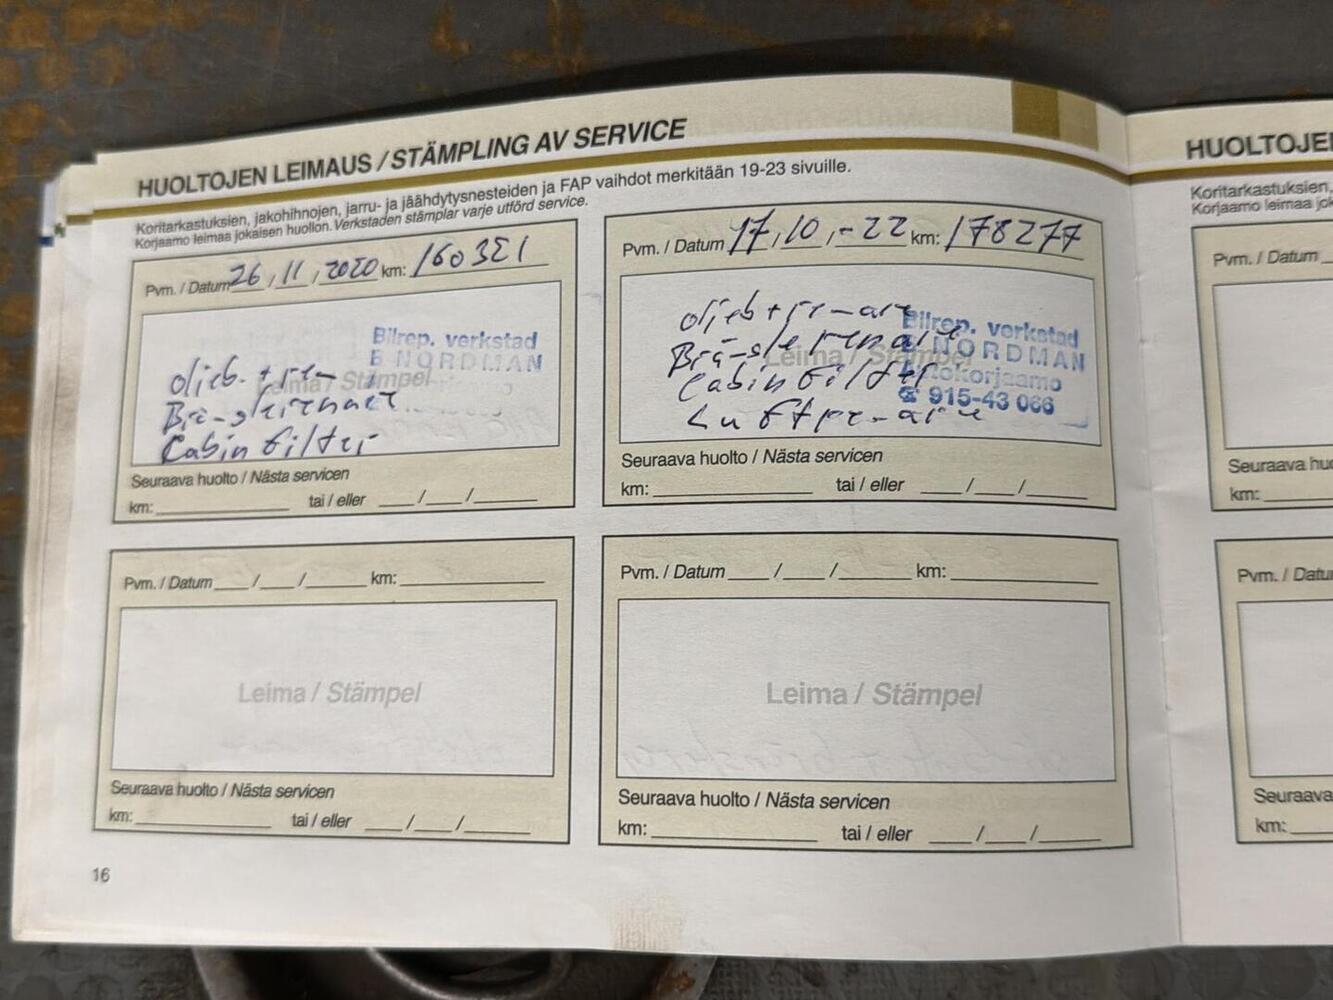 HUOLTOJEN LEIMAUS / STÄMPLING AV SERVICE
Koritarkastuksien, jakohihnojen, jarru- ja jäähdytysnesteiden ja FAP vaihdot merkitään 19-23 sivuille.
Korjaamo leimaa jokaisen huollon. Verkstaden stämplar varje utförd service.
Pvm. / Datum 26 , 11 , 2020 km: 160321
Bilrep. verkstad
B NORDMAN
Leima / Stämpel
oljeb. +
Cabin filter
Seuraava huolto / Nästa servicen
km: tai / eller / /
Pvm. / Datum 17,10,-22 km: 178277
Bilrep. verkstad
NORDMAN
Leima / Stämpel
Autokorjaamo
☎ 915-43 066
oljeb +
Cabin filter
Seuraava huolto / Nästa servicen
km: tai / eller / /
Pvm. / Datum / / km:
Leima / Stämpel
Seuraava huolto / Nästa servicen
km: tai / eller / /
Pvm. / Datum / / km:
Leima / Stämpel
Seuraava huolto / Nästa servicen
km: tai / eller / /
16
HUOLTOJE
Koritarkastuksien,
Korjaamo leimaa
Pvm. / Datum
Seuraava
km:
Pvm. /
Seuraava
km: